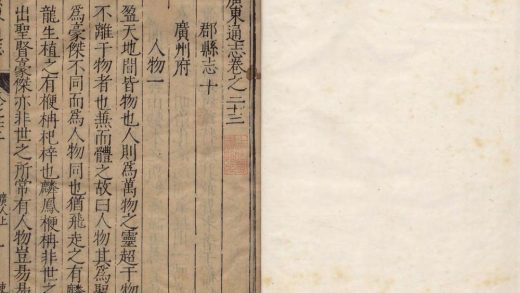 廣東通志卷之二十三
郡縣志十
廣州府
人物一
盈天地間皆物也人則爲萬物之靈超于物
不離于物者也兼而體之故曰人物其爲聖
爲豪傑不同而爲人物同也猶飛走之有麟
龍生植之有楩枏杞梓也麟鳳楩枏非世之
出聖賢豪傑亦非世之所常有人物豈易易